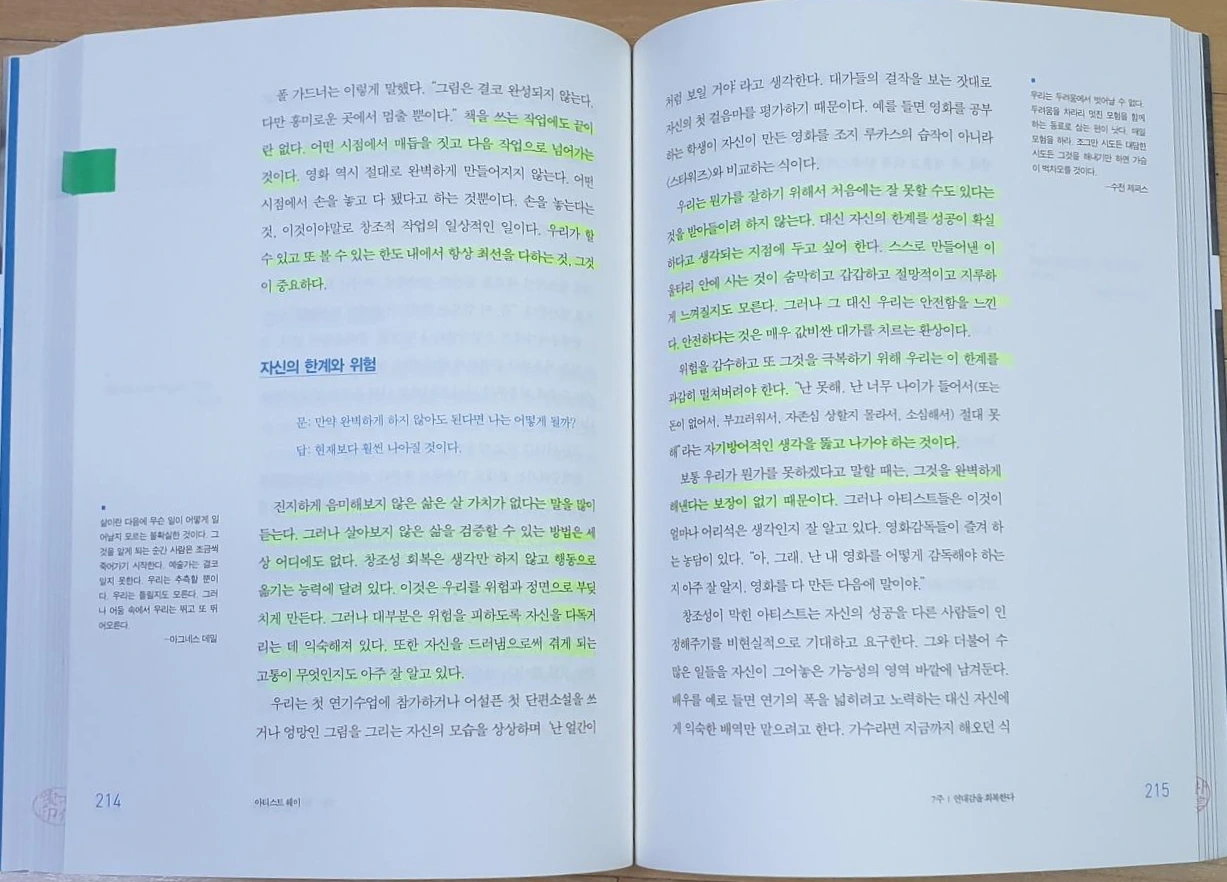 폴 가드너는 이렇게 말했다. “그림은 결코 완성되지 않는다.
다만 흥미로운 곳에서 멈출 뿐이다.” 책을 쓰는 작업에도 끝이
란 없다. 어떤 시점에서 매듭을 짓고 다음 작업으로 넘어가는
것이다. 영화 역시 절대로 완벽하게 만들어지지 않는다. 어떤
시점에서 손을 놓고 다 됐다고 하는 것뿐이다. 손을 놓는다는
것, 이것이야말로 창조적 작업의 일상적인 일이다. 우리가 할
수 있고 또 볼 수 있는 한도 내에서 항상 최선을 다하는 것, 그것
이 중요하다.
자신의 한계와 위험
문: 만약 완벽하게 하지 않아도 된다면 나는 어떻게 될까?
답: 현재보다 훨씬 나아질 것이다.
진지하게 음미해보지 않은 삶은 살 가치가 없다는 말을 많이
듣는다. 그러나 살아보지 않은 삶을 검증할 수 있는 방법은 세
상 어디에도 없다. 창조성 회복은 생각만 하지 않고 행동으로
옮기는 능력에 달려 있다. 이것은 우리를 위험과 정면으로 부딪
치게 만든다. 그러나 대부분은 위험을 피하도록 자신을 다독거
리는 데 익숙해져 있다. 또한 자신을 드러냄으로써 겪게 되는
고통이 무엇인지도 아주 잘 알고 있다.
우리는 첫 연기수업에 참가하거나 어설픈 첫 단편소설을 쓰
거나 엉망인 그림을 그리는 자신의 모습을 상상하며 ‘난 얼간이
삶이란 다음에 무슨 일이 어떻게 일
어날지 모르는 불확실한 것이다. 그
것을 알게 되는 순간 사람은 조금씩
죽어가기 시작한다. 예술가는 결코
알지 못한다. 우리는 추측할 뿐이
다. 우리는 틀릴지도 모른다. 그러
나 어둠 속에서 우리는 뛰고 또 뛰
어오른다.
—아그네스 데밀
214
아티스트 웨이
처럼 보일 거야’라고 생각한다. 대가들의 걸작을 보는 잣대로
자신의 첫 걸음마를 평가하기 때문이다. 예를 들면 영화를 공부
하는 학생이 자신이 만든 영화를 조지 루카스의 습작이 아니라
〈스타워즈〉와 비교하는 식이다.
우리는 뭔가를 잘하기 위해서 처음에는 잘 못할 수도 있다는
것을 받아들이려 하지 않는다. 대신 자신의 한계를 성공이 확실
하다고 생각되는 지점에 두고 싶어 한다. 스스로 만들어낸 이
울타리 안에 사는 것이 숨막히고 갑갑하고 절망적이고 지루하
게 느껴질지도 모른다. 그러나 그 대신 우리는 안전함을 느낀
다. 안전하다는 것은 매우 값비싼 대가를 치르는 환상이다.
위험을 감수하고 또 그것을 극복하기 위해 우리는 이 한계를
과감히 떨쳐버려야 한다. “난 못해. 난 너무 나이가 들어서(또는
돈이 없어서, 부끄러워서, 자존심 상할지 몰라서, 소심해서) 절대 못
해”라는 자기방어적인 생각을 뚫고 나가야 하는 것이다.
보통 우리가 뭔가를 못하겠다고 말할 때는, 그것을 완벽하게
해낸다는 보장이 없기 때문이다. 그러나 아티스트들은 이것이
얼마나 어리석은 생각인지 잘 알고 있다. 영화감독들이 즐겨 하
는 농담이 있다. “아, 그래. 난 내 영화를 어떻게 감독해야 하는
지 아주 잘 알지. 영화를 다 만든 다음에 말이야.”
창조성이 막힌 아티스트는 자신의 성공을 다른 사람들이 인
정해주기를 비현실적으로 기대하고 요구한다. 그와 더불어 수
많은 일들을 자신이 그어놓은 가능성의 영역 바깥에 남겨둔다.
배우를 예로 들면 연기의 폭을 넓히려고 노력하는 대신 자신에
게 익숙한 배역만 맡으려고 한다. 가수라면 지금까지 해오던 식
우리는 두려움에서 벗어날 수 없다.
두려움을 차라리 멋진 모험을 함께
하는 동료로 삼는 편이 낫다. 매일
모험을 하라. 조그만 시도든 대담한
시도든 그것을 해내기만 하면 가슴
이 벅차오를 것이다.
—수잔 제퍼스
7주 | 연대감을 회복한다
215